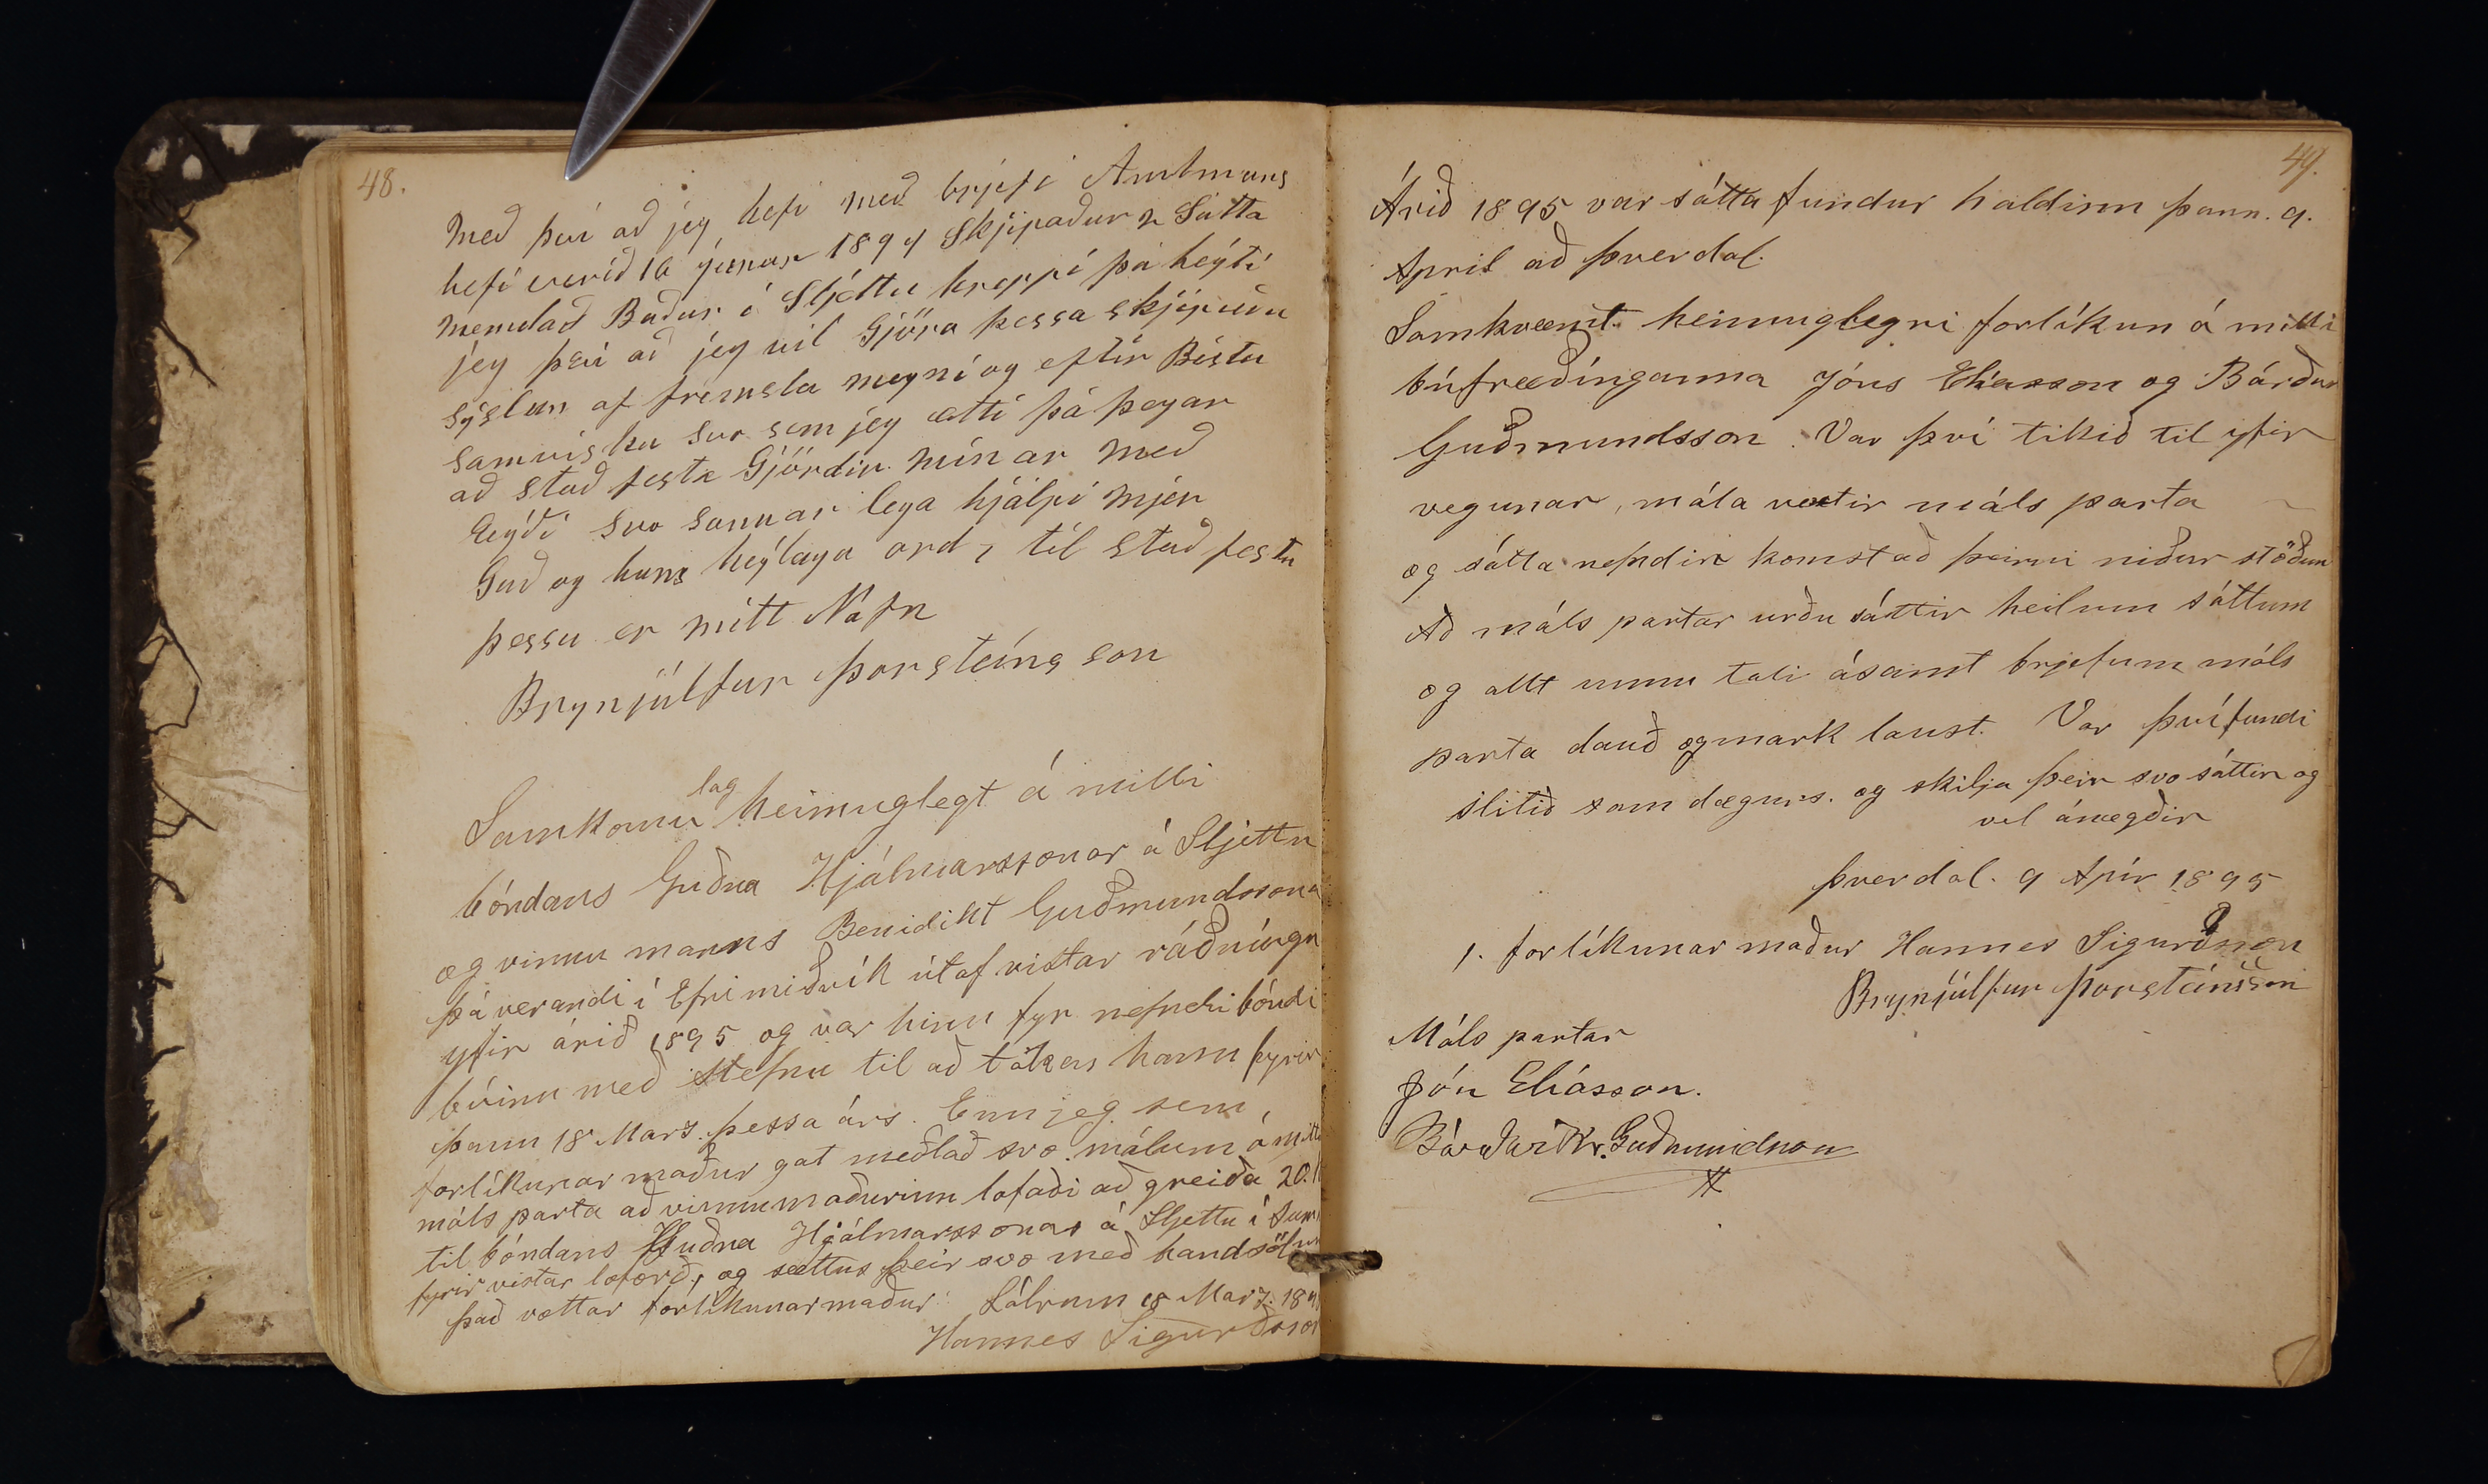 48.
Með því að jeg hefi með brjefi Amtmans
hefi verið 16 júnar 1894 Skjipaður Sátta
memdað Baður í Sljéttu hreppi þá heýti
jeg því að jeg vil Gjöra þessa skjipuðu
sýslun af fremsta megni og eftir Bestu
samvisku svo sem jeg ætti þá þegar
að stað festa Gjördir mínar með
Eýði svo sannar lega hjálpi mjer
Guð og hans heýlaga ord, til stað festu
þessu er mitt Nafn
Brynjúlfur Þorsteinsson
Samkomulag heimuglegt á milli
bóndans Guðna Hjálmarssonar á Sljettu
og vinnu manns Benidikt Guðmundssona
þá verandi í Efri miðvík útaf vistar ráðningu
yfir árið 1895 og var hinn fyr nefndi bóndi
búinn með stefnu til að taka hann fyrir
þann 18 Mars þessa árs. Enn jeg sem
forlíkunar maður gat meðlað svo málum á milli
máls parta að vinnumaðurinn lofaði að greiða 20.
til bóndans Guðna Hjálmarssonar á Sljettu í
fyrir vistar loforð, og sættus þeir svo með handsölum
það vottar forlíkunarmaður Látrum 18 Marz. 18
Hannes Sigurðsson
49.
Árið 1895 var sátta fundur haldinn þann. 9.
April að Þverdal.
Samkvæmt heimuglegri forlíkun á milli
búfræðínganna Jóns Elíasson og Bárður
Guðmundsson. Var því tikið til yfir
vegunar, mála vextir máls parta
og sátta nefndin komst að þeirri niður stöðun
Að máls partar urðu sáttir heilum sáttum
og allt ummu tali ásamt brjefum máls
parta dauð og mark laust. Var því fundi
slitið sam dægurs. og skilja þeir svo sáttir og
vel ánægðir
Þverdal. 9 Apír 1895
1. forlíkunar maður Hannes Sigurðsson
Brynjúlfur Þorsteinsson
Máls partar
Jón Elíasson.
Bárður Kr. Guðmundson